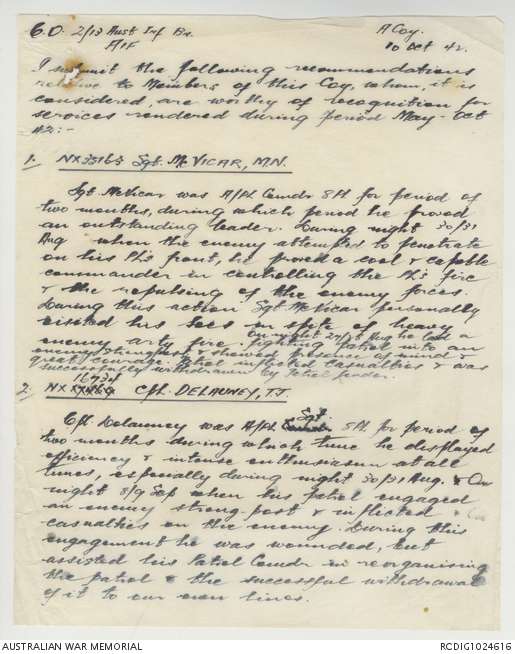 C.O. 2/13 Aust Inf Bn. A Coy.
AIF 10 Oct 42.
I submit the following recommendations
relative to Members of this Coy, whom, it is
considered, are worthy of recognition for
services rendered during period May - Oct
42:-
1. NX35163 Sgt. McVICAR, M.N.
Sgt. McVicar was A/Pl Comdr 8 Pl for period of
two months, during which period he proved
an outstanding leader. During night 30/31
Aug when the enemy attempted to penetrate
on his Pl's front, he proved a cool & capable
commander in controlling the Pl's fire
& the repulsing of the enemy forces.
During this action Sgt McVicar personally
visited his secs in spite of heavy
enemy arty fire. Aug he led a
fighting Patrol into an
enemy & showed presence of mind &
great courage. Patrol inflicted casualties & was
successfully withdrawn by Patrol leader.
16934
2. NX Cpl. DELAUNEY, T.J
Sgt.
Cpl Delauney was A/Pl 8 Pl for period of
two months during which time he displayed
efficiency & intense enthusiasm at all
times, especially during night 30/31 Aug. & On
night 8/9 Sep when his patrol engaged
an enemy strong-post & inflicted
casualties on the enemy. During this
engagement he was wounded, but
assisted his Patrol Comdr in reorganising
the patrol & the successful withdrawal
of it to our own lines.
AUSTRALIAN WAR MEMORIAL RCDIG1024616